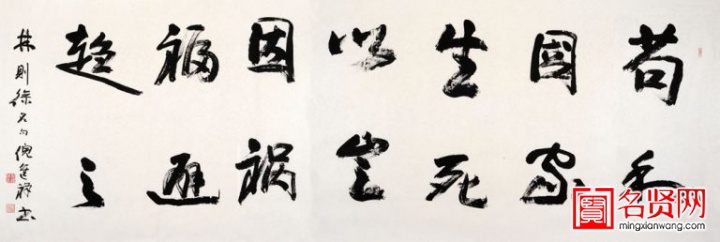 苟利
國家
生死
以豈
因禍
福避
趨之
林则徐名句
名贤网
mingxianwang.com